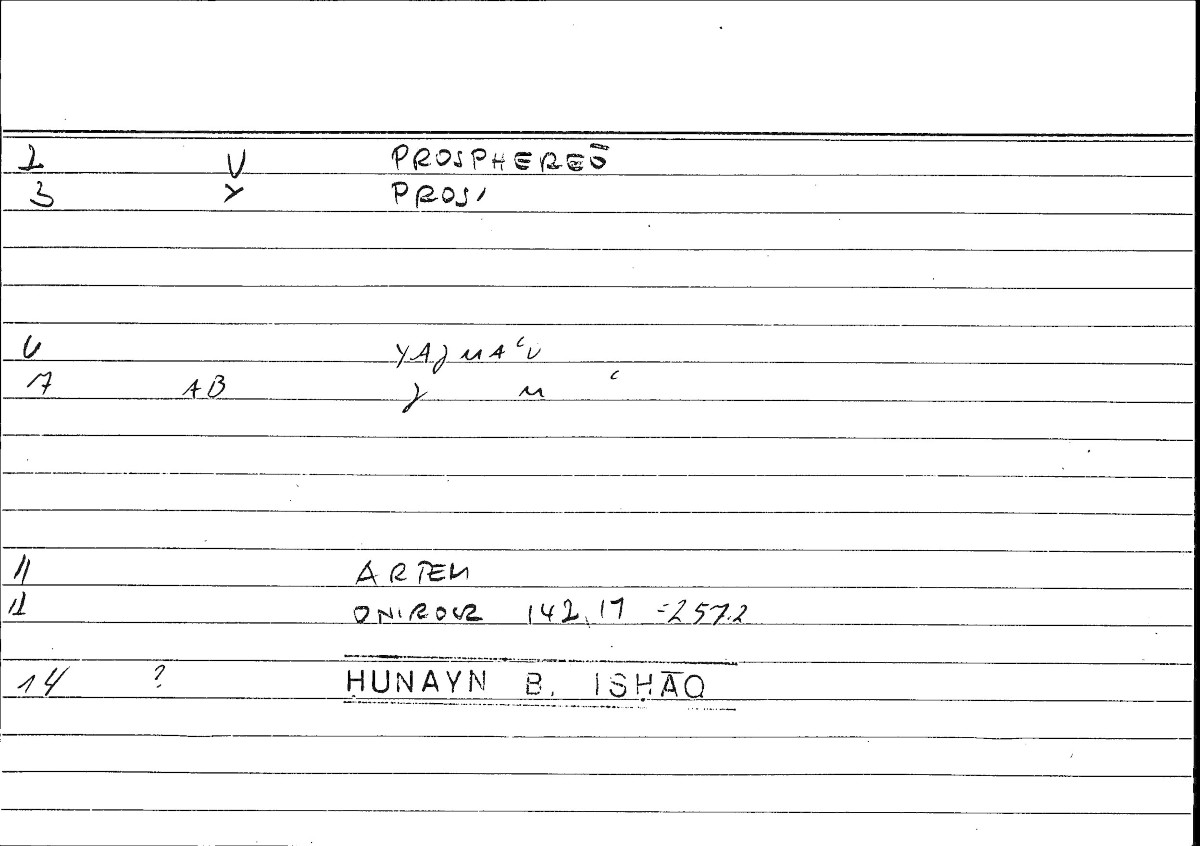 2 V PROSPHEREŌ
3 Y PROS,
6 YAJMAʿU
7 AB J M ʿ
11 ARTEM
12 ONIROCR 142,17 =257.2
14 ? ḤUNAYN B. ISḤĀQ